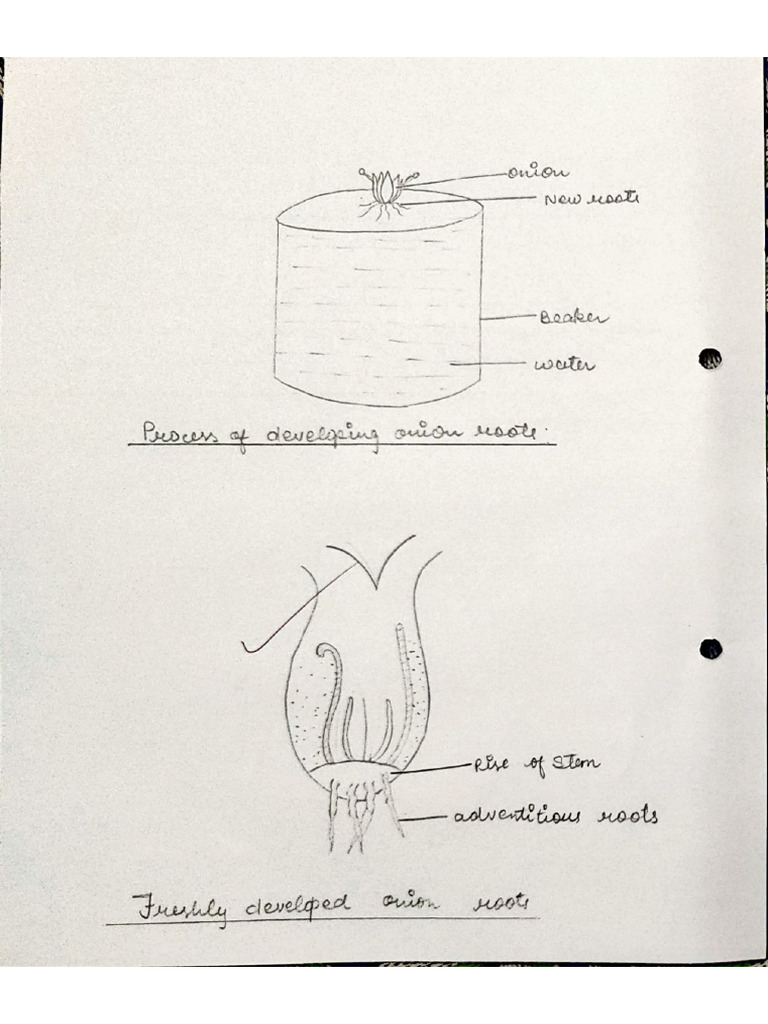 onion
New roots
Beaker
water
Process of developing onion roots.
Rise of Stem
adventitious roots
Freshly develped onion roots